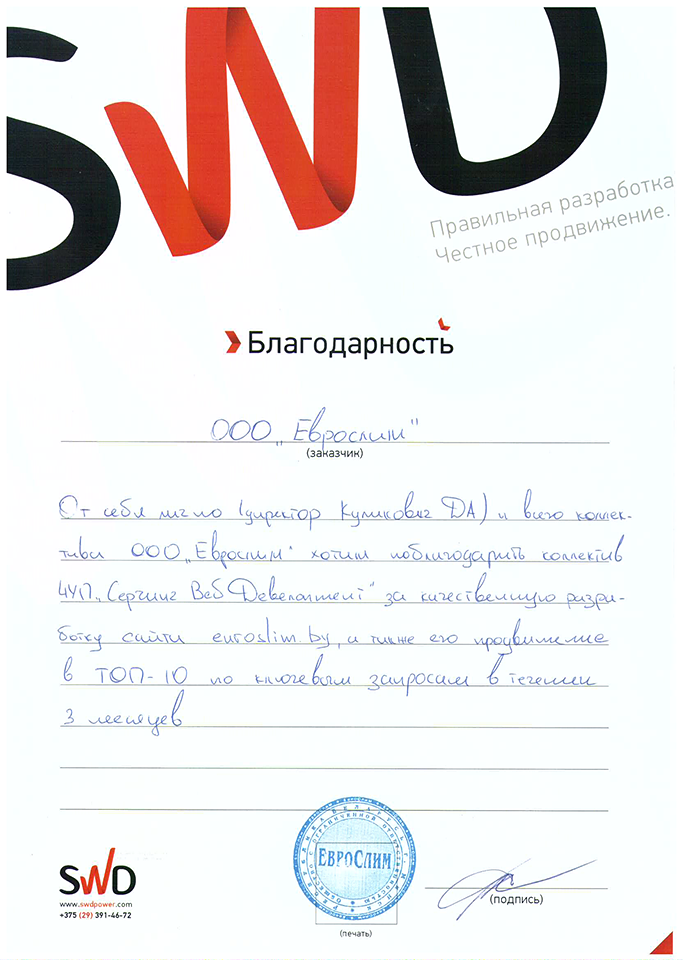 SWD
Правильная разработка
Честное продвижение.
Благодарность
ООО „Еврослим"
(заказчик)
От себя лично (директор Куликович ДА) и всего коллек-
тива ООО „Еврослим" хотим поблагодарить коллектив
ЧУП „Серчинг Веб Девелопмент" за качественную разра-
ботку сайта euroslim.by, а также его продвижение
в ТОП-10 по ключевым запросам в течении
3 месяцев
ЕвроСлим
SWD
www.swdpower.com
+375 (29) 391-46-72
(подпись)
(печать)